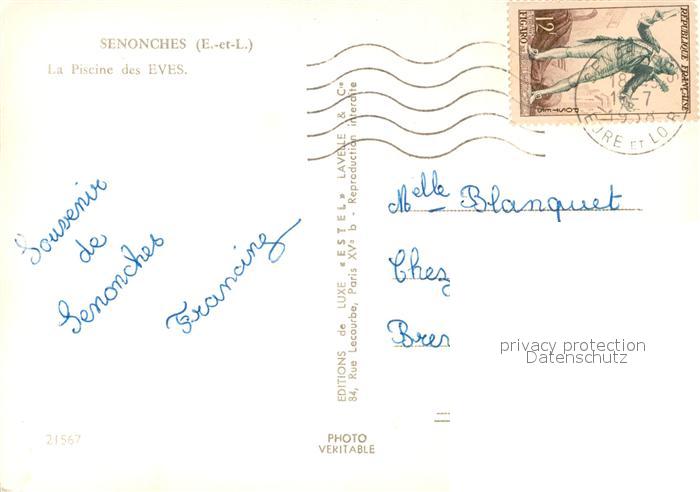 SENONCHES (E.-et-L.)
La Piscine des EVES.
Souvenir
de
Senonches
Francine
21567
EDITIONS de LUXE «ESTEL» LAVELLE & Cie
84, Rue Lecourbe, Paris XVe b - Reproduction interdite
PHOTO
VERITABLE
12F
FIGARO
REPUBLIQUE FRANÇAISE
POSTES
EURE ET LOIR
Melle Blanquet
Chez
privacy protection
Datenschutz